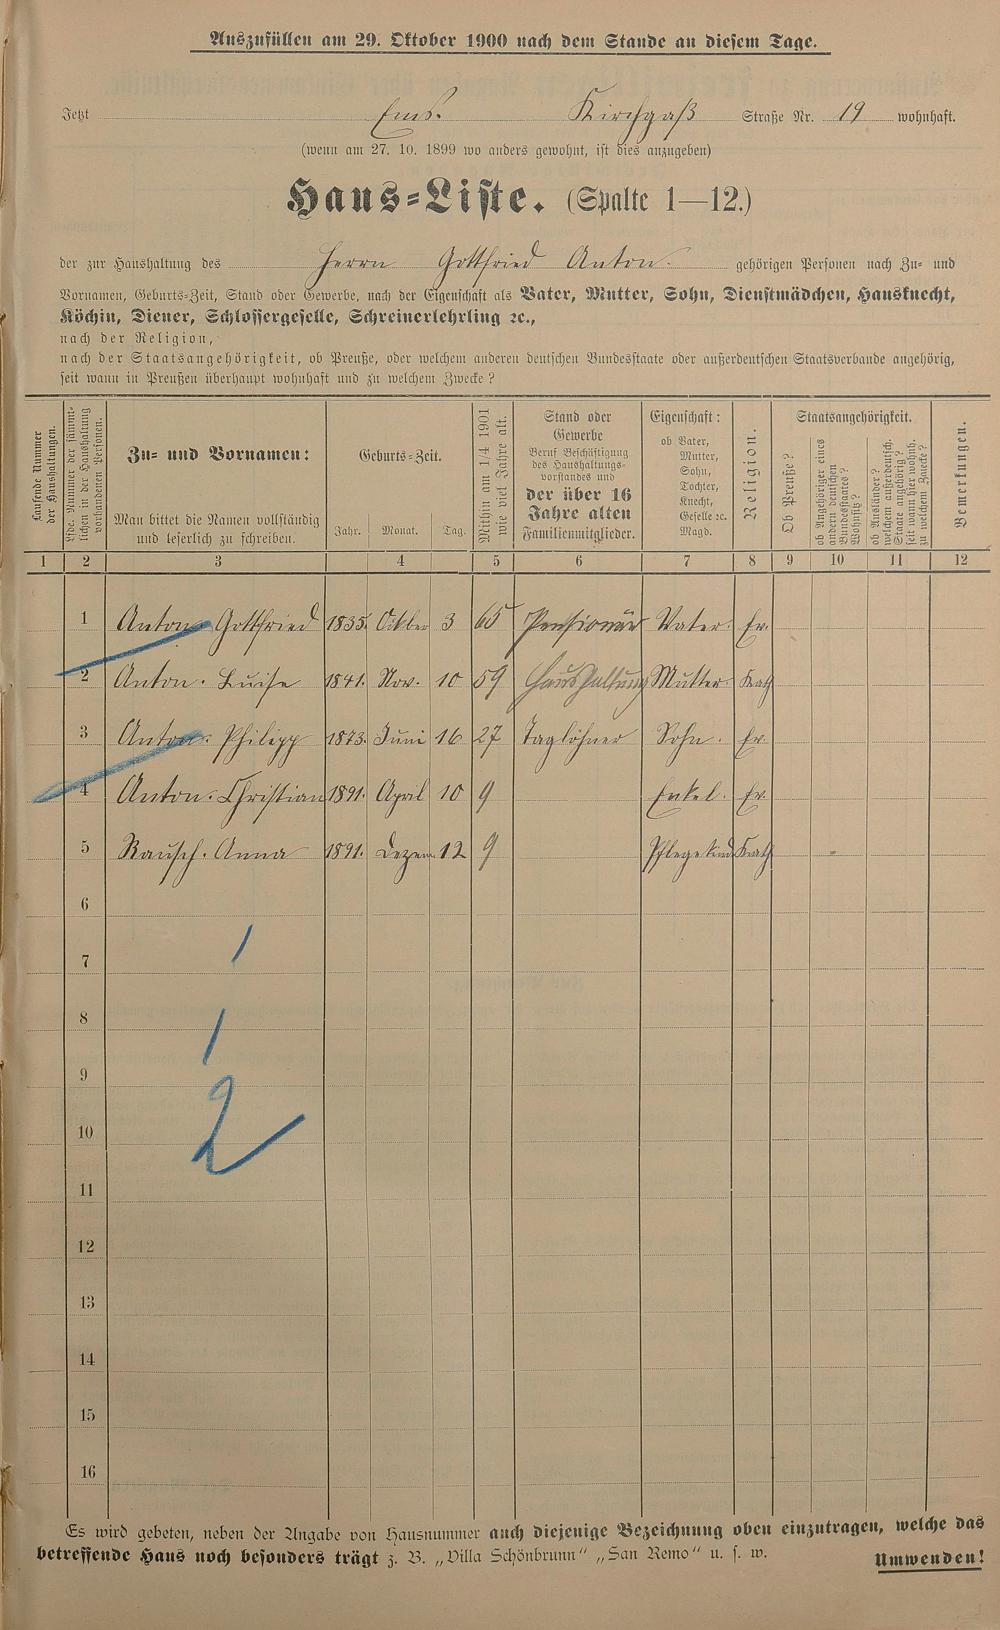 Auszufüllen am 29. Oktober 1900 nach dem Stande an diesem Tage.
Jetzt Ems. Kirchgaß Straße Nr. 19 wohnhaft.
(wenn am 27. 10. 1899 wo anders gewohnt, ist dies anzugeben)
Haus-Liste. (Spalte 1—12.)
der zur Haushaltung des Herrn Gottfried Anton. gehörigen Personen nach Zu- und
Vornamen, Geburts-Zeit, Stand oder Gewerbe, nach der Eigenschaft als Vater, Mutter, Sohn, Dienstmädchen, Hausknecht,
Köchin, Diener, Schlossergeselle, Schreinerlehrling ꝛc.,
nach der Religion,
nach der Staatsangehörigkeit, ob Preuße, oder welchem anderen deutschen Bundesstaate oder außerdeutschen Staatsverbande angehörig,
seit wann in Preußen überhaupt wohnhaft und zu welchem Zwecke?
Laufende Nummer
der Haushaltungen.
Lfde. Nummer der sämmt-
lichen in der Haushaltung
vorhandenen Personen.
Zu- und Vornamen:
Man bittet die Namen vollständig
und leserlich zu schreiben.
Geburts-Zeit.
Jahr. Monat. Tag.
Mithin am 1/4 1901
wie viel Jahre alt.
Stand oder
Gewerbe
Beruf Beschäftigung
des Haushaltungs-
vorstandes und
der über 16
Jahre alten
Familienmitglieder.
Eigenschaft:
ob Vater,
Mutter,
Sohn,
Tochter,
Knecht,
Geselle ꝛc.
Magd.
Religion.
Staatsangehörigkeit.
Ob Preuße?
ob Angehöriger eines
andern deutschen
Bundesstaates?
Wohnsitz?
ob Ausländer?
welchem außerdeutsch.
Staate angehörig?
seit wann hier wohnh.
zu welchem Zwecke?
Bemerkungen.
1 2 3 4 5 6 7 8 9 10 11 12
1 Anton. Gottfried 1835. Oktber 3 65 Pensionär Vater. Ev.
2 Anton. Luise 1841. Nov. 10 59 Haushaltung Mutter. Kath
3 Anton. Philipp 1873. Juni 16 27 Taglöhner Sohn. Ev.
4 Anton. Christian 1891. April 10 9 Enkel. Ev.
5 Rausch. Anna 1891. Dezem 12 9 Pflegekind Kath
6
7 1
8 1
9
10 2
11
12
13
14
15
16
Es wird gebeten, neben der Angabe von Hausnummer auch diejenige Bezeichnung oben einzutragen, welche das
betreffende Haus noch besonders trägt z. B. „Villa Schönbrunn" „San Remo" u. s. w.
Umwenden!